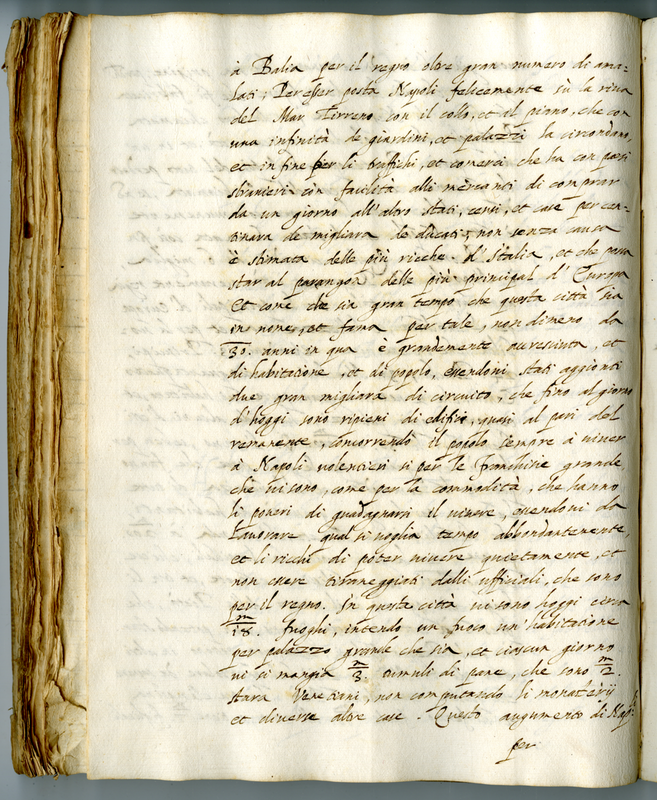 à Balia per il regno oltre gran numero di ama-
lati; Per esser posta Napoli felicemente sù la riva
del Mar Tirreno con il colle, et il piano, che con
una infinità de giardini, et palazzi la circondano,
et in fine per li traffichi, et comerci che ha con paesi
stranieri con facilità alli mercanti di comprar
da un giorno all'altro stati, censi, et case per cen-
tinara de migliara de ducati, non senza causa
è stimata delle più ricche d'Italia, et che possa
star al parangon delle più principal d'Europa
Et come che sia gran tempo che questa città ha
in nome, et fama per tale, non dimeno da
30. anni in qua è grandemente accresciuta, et
di habitatione, et di popolo, essendoni stati aggionti
due gran migliara di circuito, che fino al giorno
d'hoggi sono ripieni di edifici, quasi al pari del
remanente, concorrendo il popolo sempre à viver
à Napoli volentieri si per le franchitie grande,
che vi sono, come per la commodità, che hanno
li poveri di guadagnarsi il vivere, havendoni da
lavorare qual si voglia tempo abbondantemente,
et li ricchi di poter vivere quietamente, et
non essere tiranneggiati dalli ufficiali, che sono
per il regno. In questa città vi sono hoggi cerca
m/18. fuoghi, intendo un fuoco un'habitatione
per palazzo grande che sia, et ciascun giorno
vi si mangia m/3. tumuli di pane, che sono m/2.
stara Venetiani, non computando li monasterij
et diverse altre case. Questo augumento di Nap:
per